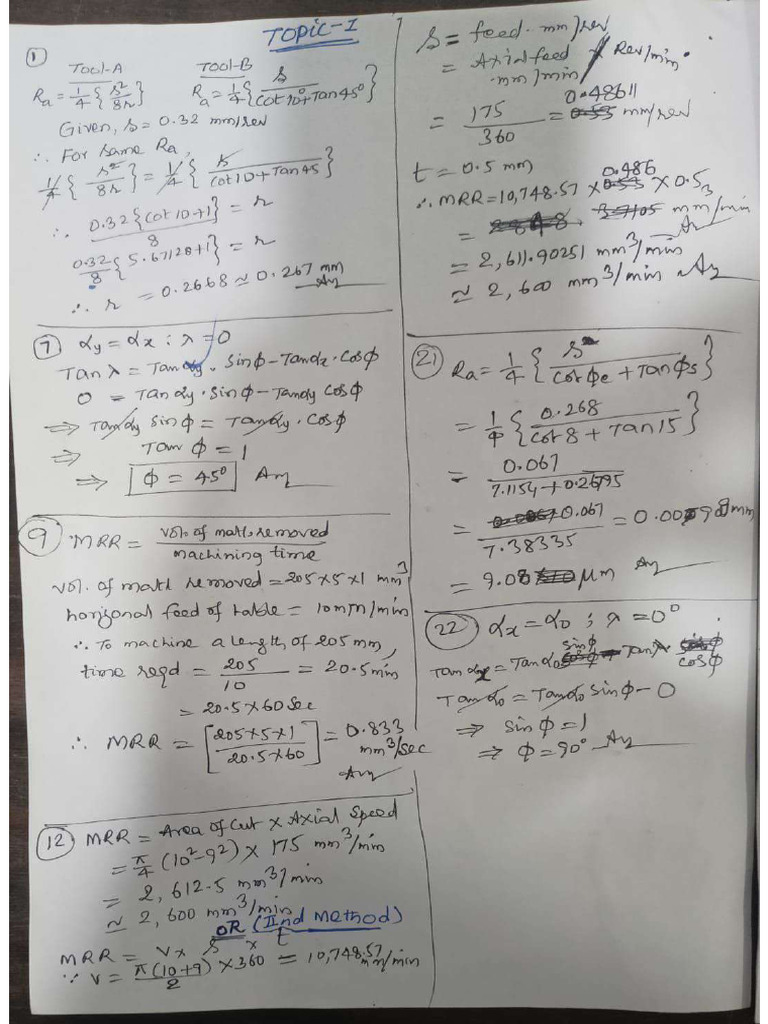 Topic-1
①
Tool-A Tool-B
Ra = 1/4 {s²/8r} Ra = 1/4 {s/(cot10°+Tan45°)}
Given, s = 0.32 mm/rev
∴ For same Ra,
1/4 {s²/8r} = 1/4 {s/(cot10+Tan45)}
∴ 0.32{cot10+1}/8 = r
0.32/8 {5.67128+1} = r
∴ r = 0.2668 ≈ 0.267 mm
Ay
⑦ αy = αx ; λ = 0
Tanλ = Tanαy · Sinφ - Tanαx · Cosφ
0 = Tanαy · Sinφ - Tanαy Cosφ
⇒ Tanαy Sinφ = Tanαy · Cosφ
⇒ Tanφ = 1
⇒ φ = 45° Ay
⑨ MRR = vol. of matl. removed / machining time
vol. of matl removed = 205×5×1 mm³
horizonal feed of table = 10mm/min
∴ To machine a length of 205 mm,
time reqd = 205/10 = 20.5 min
= 20.5×60 Sec
∴ MRR = [205×5×1 / 20.5×60] = 0.833 mm³/sec
Ay
⑫ MRR = Area of cut × Axial Speed
= π/4 (10²-9²) × 175 mm³/min
= 2,612.5 mm³/min
≈ 2,600 mm³/min
OR (IInd Method)
MRR = v × s × t
∵ v = π(10+9)/2 × 360 = 10,748.57 mm/min
s = feed mm/rev
= Axial feed mm/min / Rev/min
= 175/360 = 0.48611 mm/rev
t = 0.5 mm
∴ MRR = 10,748.57 × 0.486 × 0.5
= mm³/min
Ay
= 2,611.90251 mm³/min
≈ 2,600 mm³/min Ay
㉑ Ra = 1/4 {s/(cotφe + Tanφs)}
= 1/4 {0.268/(cot8 + Tan15)}
= 0.067/(7.1154+0.26795)
= 0.067/7.38335 = mm
= 9.08 μm Ay
㉒ αx = α0 ; λ = 0°
Tanαx = Tanα0 sinφ - Tanλ cosφ
Tanα0 = Tanα0 sinφ - 0
⇒ sinφ = 1
⇒ φ = 90° Ay